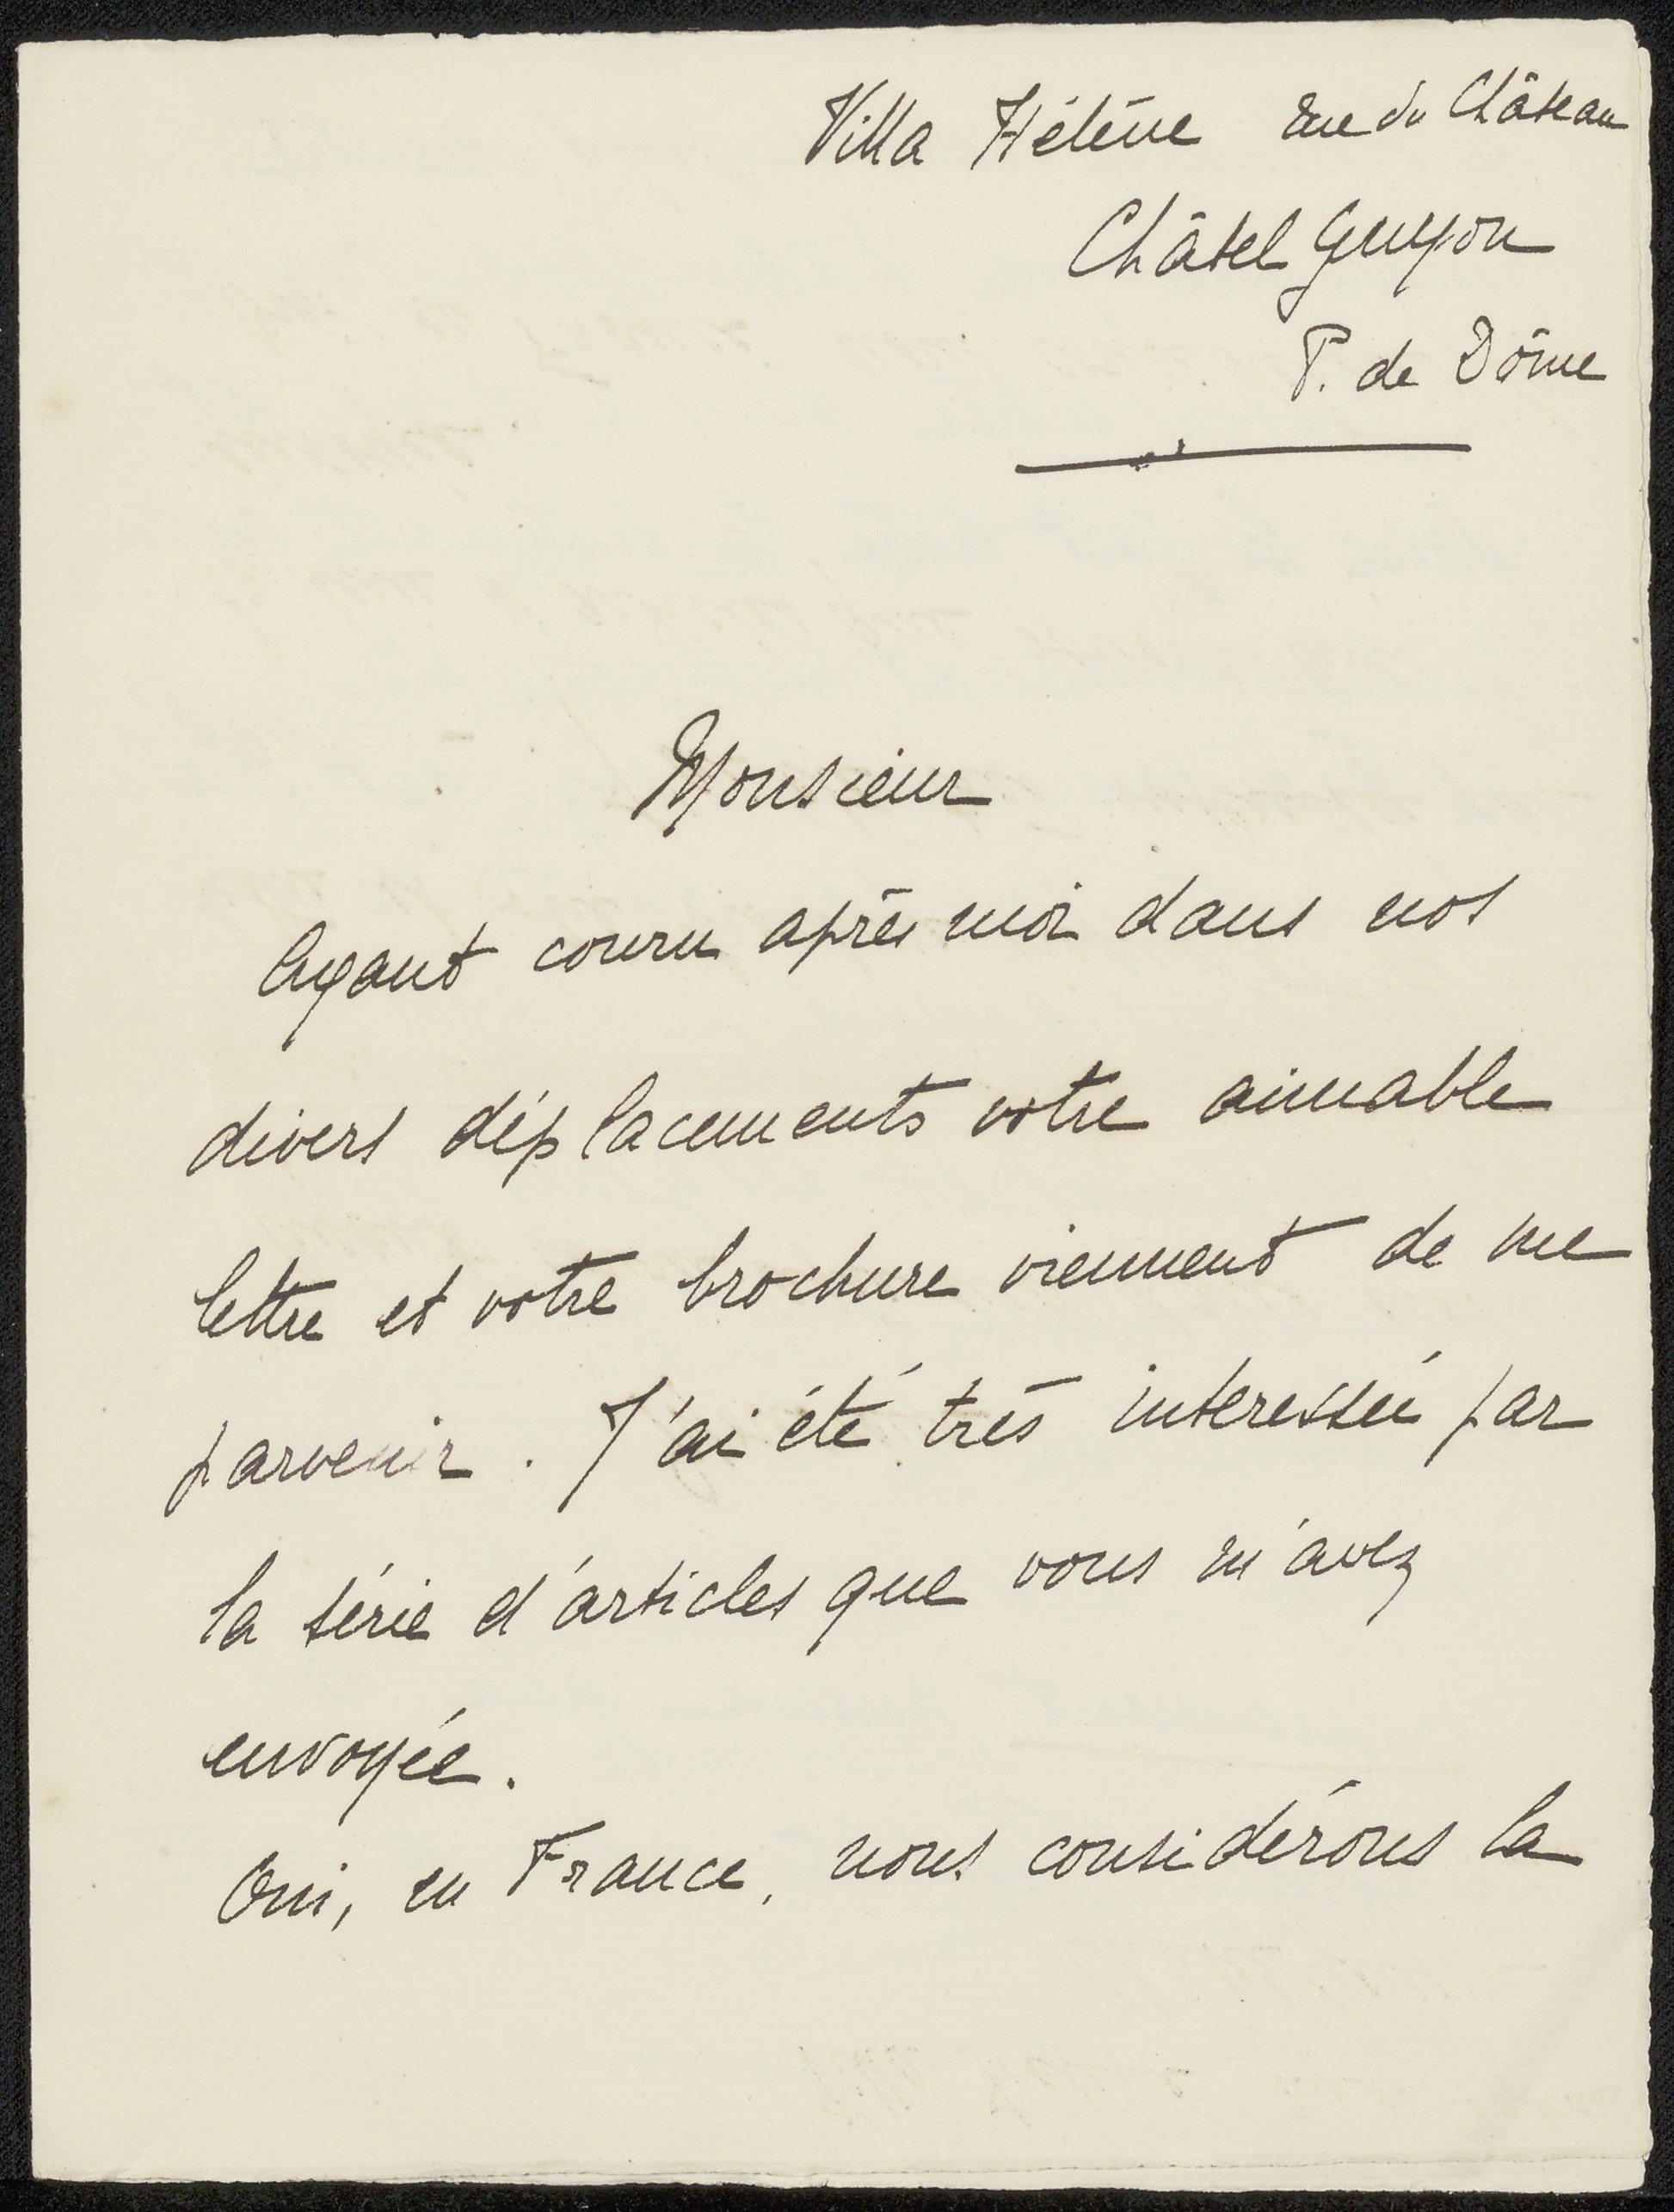 Villa Hélène rue du Château
Châtel Guyon
P. de Dôme
Monsieur
Ayant couru après moi dans nos
divers déplacements votre aimable
lettre et votre brochure viennent de me
parvenir. J'ai été très interessée par
la série d'articles que vous m'avez
envoyée.
Oui, en France, nous considérons la